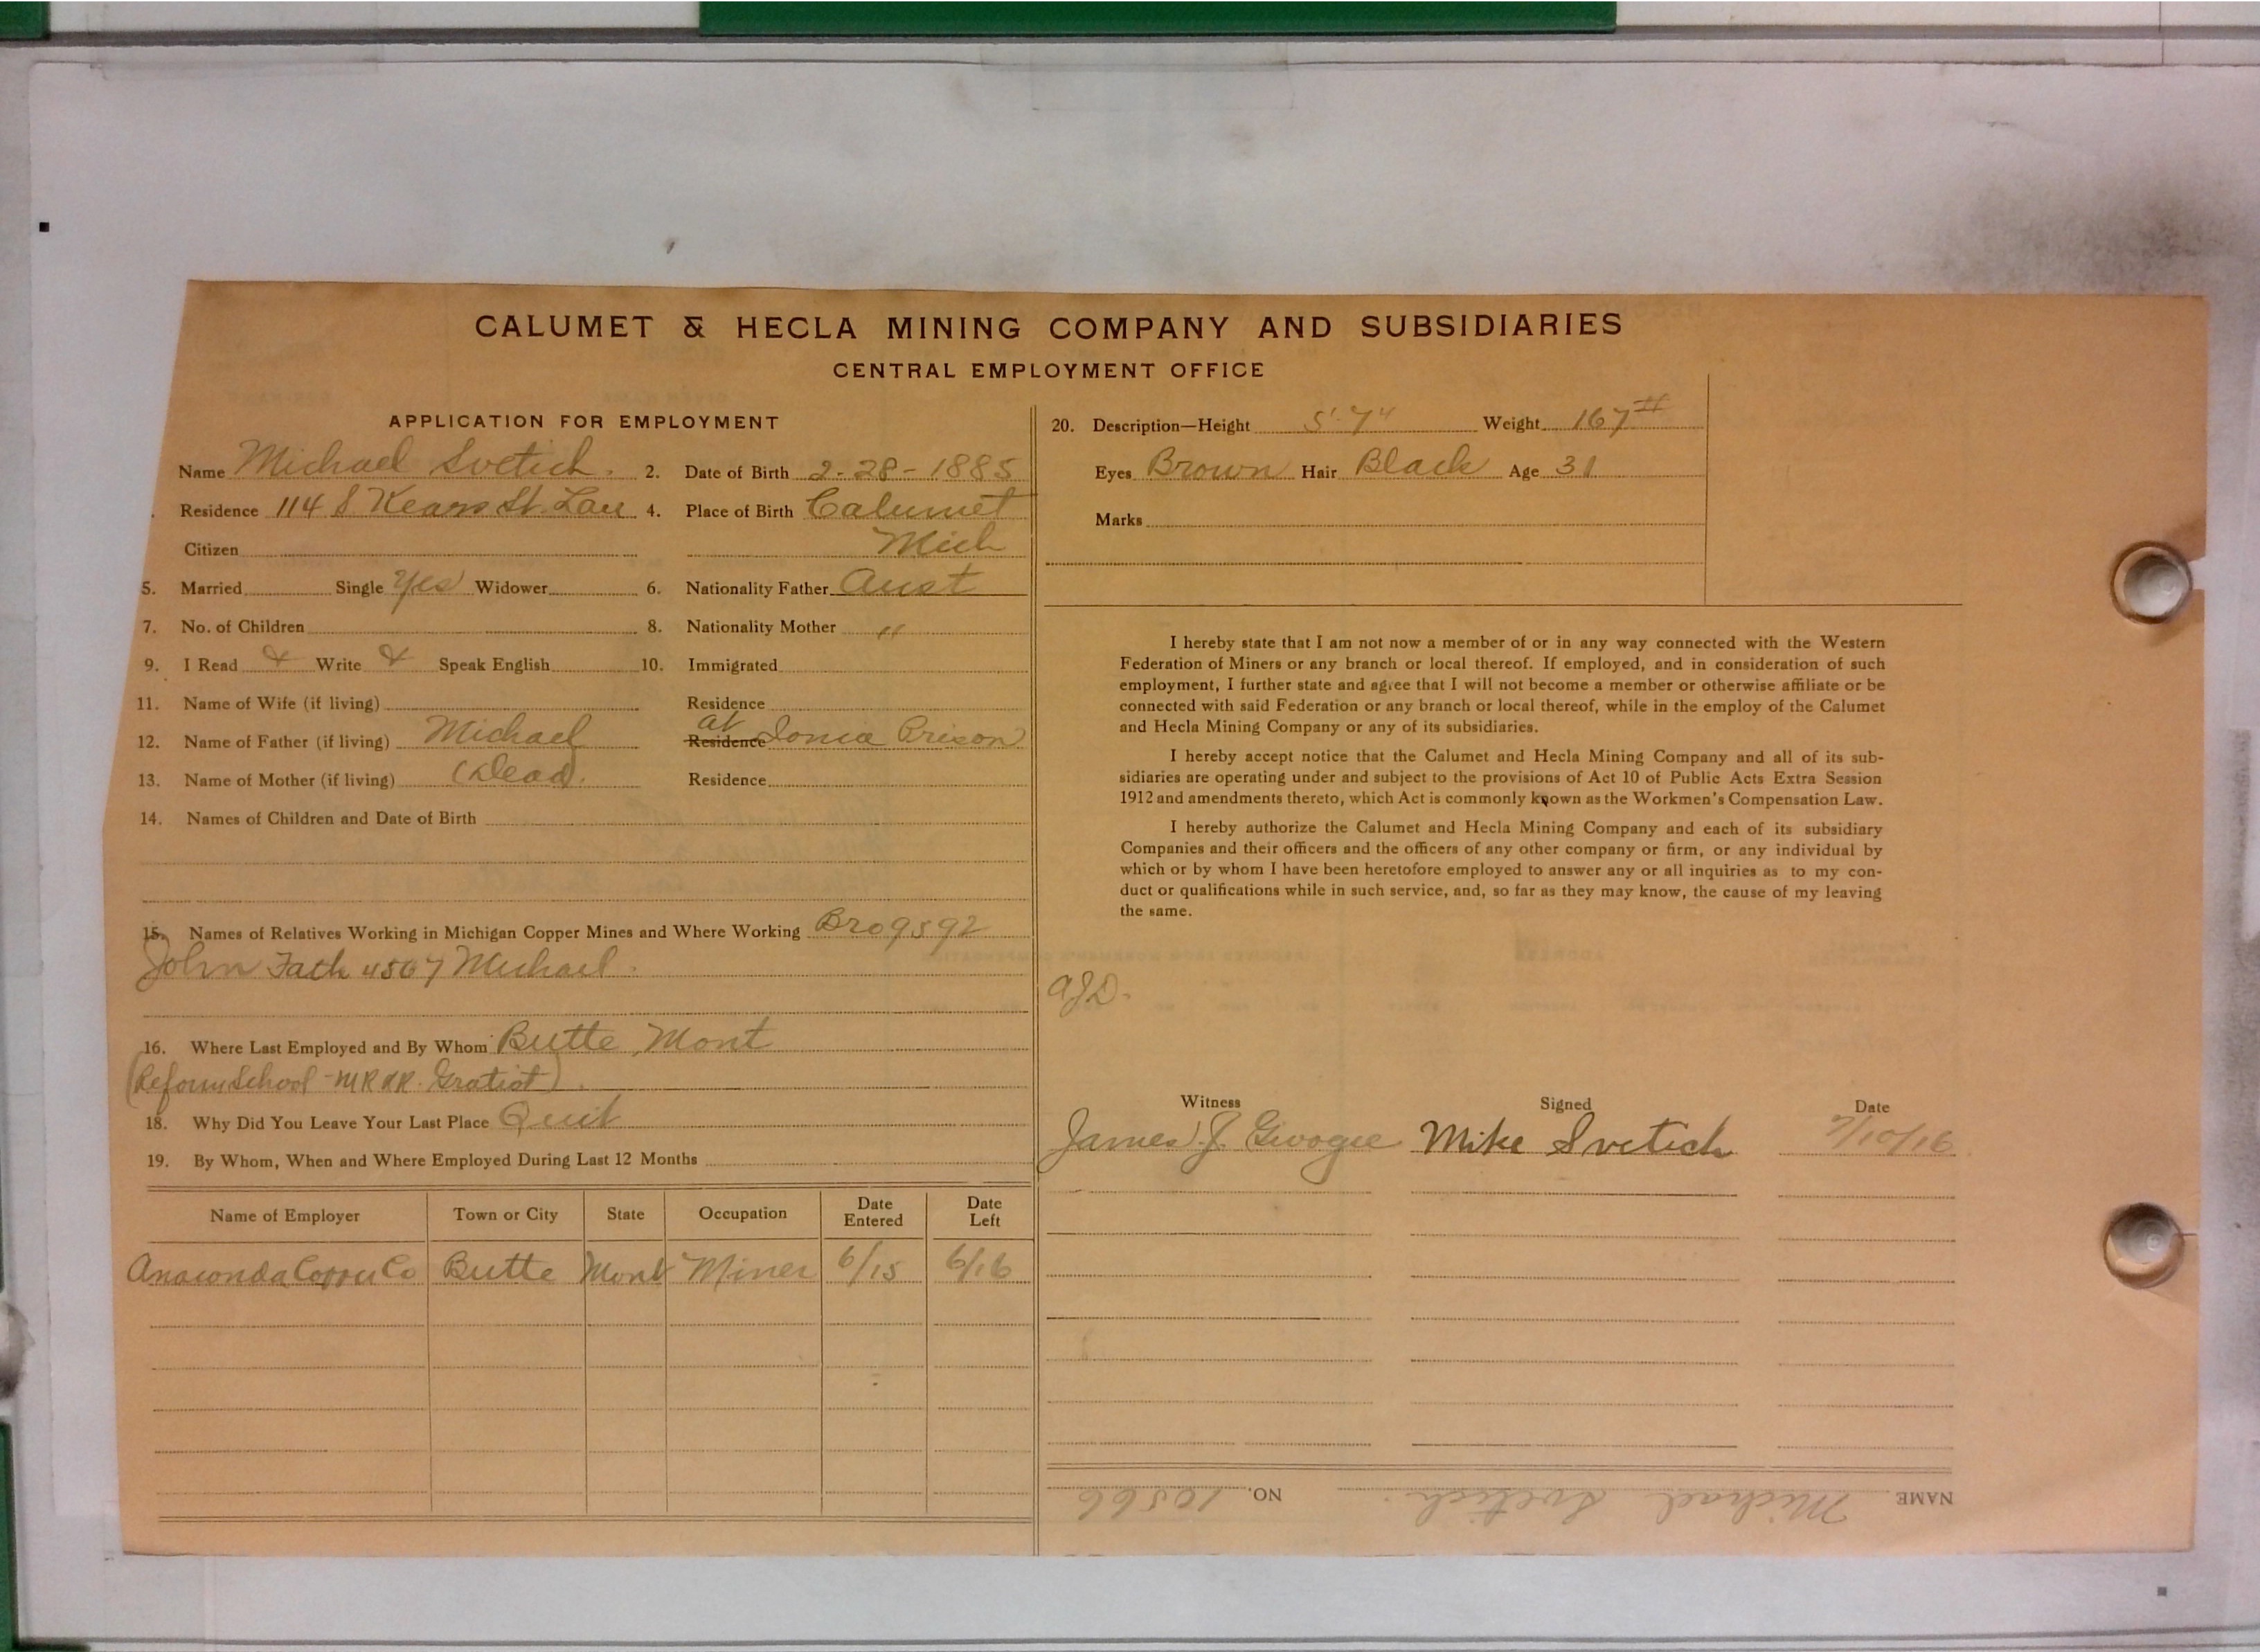 CALUMET & HECLA MINING COMPANY AND SUBSIDIARIES
CENTRAL EMPLOYMENT OFFICE
APPLICATION FOR EMPLOYMENT
Name Michael Svetich. 2. Date of Birth 2-28-1885
Residence 114 S Kearn St. Lau 4. Place of Birth Calumet
Citizen Mich
5. Married Single Yes Widower 6. Nationality Father Aust
7. No. of Children 8. Nationality Mother "
9. I Read & Write & Speak English 10. Immigrated
11. Name of Wife (if living) Residence
12. Name of Father (if living) Michael Residence at Ionia Prison
13. Name of Mother (if living) (Dead). Residence
14. Names of Children and Date of Birth
15. Names of Relatives Working in Michigan Copper Mines and Where Working Bro 9592
John Fath 4567 Michael.
16. Where Last Employed and By Whom Butte Mont
(Reform School - MR RR. Gratiot).
18. Why Did You Leave Your Last Place Quit
19. By Whom, When and Where Employed During Last 12 Months
Name of Employer Town or City State Occupation Date Entered Date Left
Anaconda Copper Co Butte Mont Miner 6/15 6/16
20. Description—Height 5'-7" Weight 167#
Eyes Brown Hair Black Age 31
Marks
I hereby state that I am not now a member of or in any way connected with the Western
Federation of Miners or any branch or local thereof. If employed, and in consideration of such
employment, I further state and agree that I will not become a member or otherwise affiliate or be
connected with said Federation or any branch or local thereof, while in the employ of the Calumet
and Hecla Mining Company or any of its subsidiaries.
I hereby accept notice that the Calumet and Hecla Mining Company and all of its sub-
sidiaries are operating under and subject to the provisions of Act 10 of Public Acts Extra Session
1912 and amendments thereto, which Act is commonly known as the Workmen's Compensation Law.
I hereby authorize the Calumet and Hecla Mining Company and each of its subsidiary
Companies and their officers and the officers of any other company or firm, or any individual by
which or by whom I have been heretofore employed to answer any or all inquiries as to my con-
duct or qualifications while in such service, and, so far as they may know, the cause of my leaving
the same.
AJD.
Witness Signed Date
James J. Mike Svetich 7/10/16
NAME Michael Svetich. NO. 10566